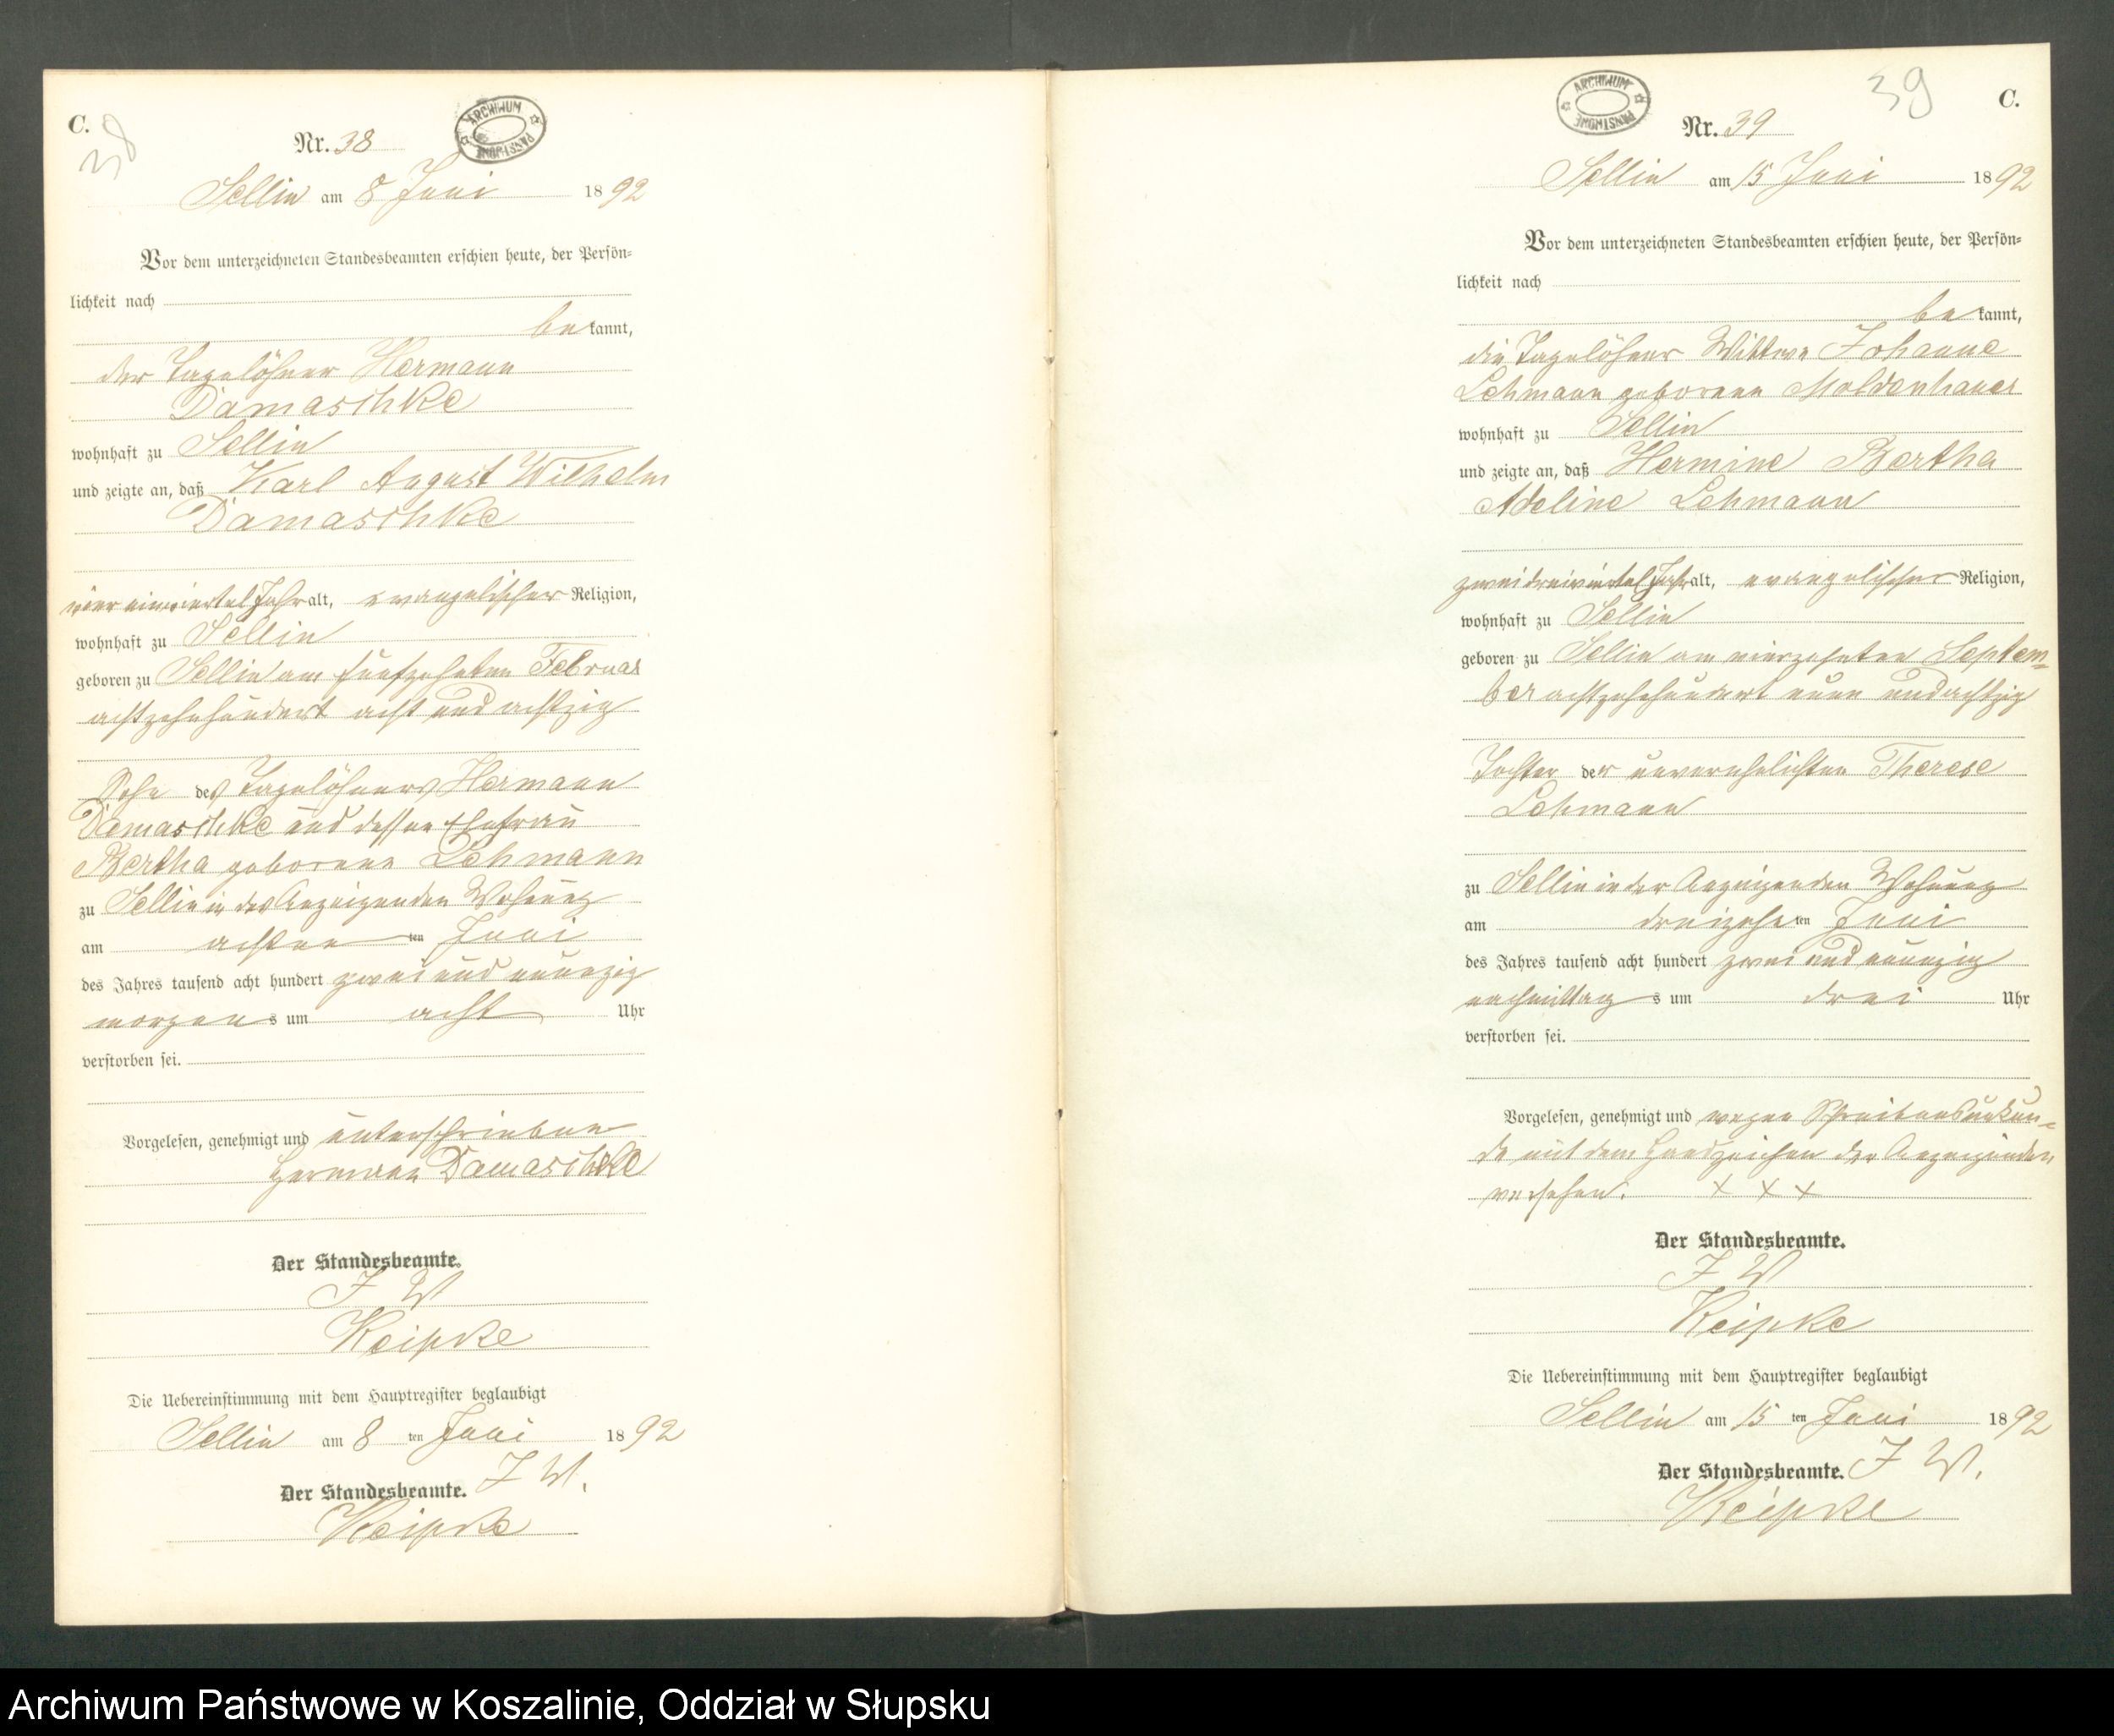 C.
38
Nr. 38
ARCHIWUM PAŃSTWOWE
Sellin am 8 Juni 1892
Vor dem unterzeichneten Standesbeamten erschien heute, der Persön-
lichkeit nach
be kannt,
der Tagelöhner Hermann
Damaschke
wohnhaft zu Sellin
und zeigte an, daß Karl August Wilhelm
Damaschke
vier einviertel Jahr alt, evangelischer Religion,
wohnhaft zu Sellin
geboren zu Sellin am fünfzehnten Februar
achtzehnhundert acht und achtzig
Sohn des Tagelöhners Hermann
Damaschke und dessen Ehefrau
Bertha geborenen Lehmann
zu Sellin in des Anzeigenden Wohnung
am achten ten Juni
des Jahres tausend acht hundert zwei und neunzig
morgens um acht Uhr
verstorben sei.
Vorgelesen, genehmigt und unterschrieben
Hermann Damaschke
Der Standesbeamte.
I V
Keipke
Die Uebereinstimmung mit dem Hauptregister beglaubigt
Sellin am 8 ten Juni 1892
Der Standesbeamte. I V.
Keipke
39
C.
ARCHIWUM PAŃSTWOWE
Nr. 39
Sellin am 15 Juni 1892
Vor dem unterzeichneten Standesbeamten erschien heute, der Persön-
lichkeit nach
be kannt,
die Tagelöhner Wittwe Johanne
Lehmann geborene Moldenhauer
wohnhaft zu Sellin
und zeigte an, daß Hermine Bertha
Adeline Lehmann
zwei dreiviertel Jahr alt, evangelischer Religion,
wohnhaft zu Sellin
geboren zu Sellin am vierzehnten Septem-
ber achtzehnhundert neun und achtzig
Tochter der unverehelichten Therese
Lehmann
zu Sellin in der Anzeigenden Wohnung
am dreizehn ten Juni
des Jahres tausend acht hundert zwei und neunzig
nachmittags um drei Uhr
verstorben sei.
Vorgelesen, genehmigt und wegen Schreibensunkun-
de mit dem Handzeichen der Anzeigenden
versehen. x x x
Der Standesbeamte.
I V
Keipke
Die Uebereinstimmung mit dem Hauptregister beglaubigt
Sellin am 15 ten Juni 1892
Der Standesbeamte. I V.
Keipke
Archiwum Państwowe w Koszalinie, Oddział w Słupsku